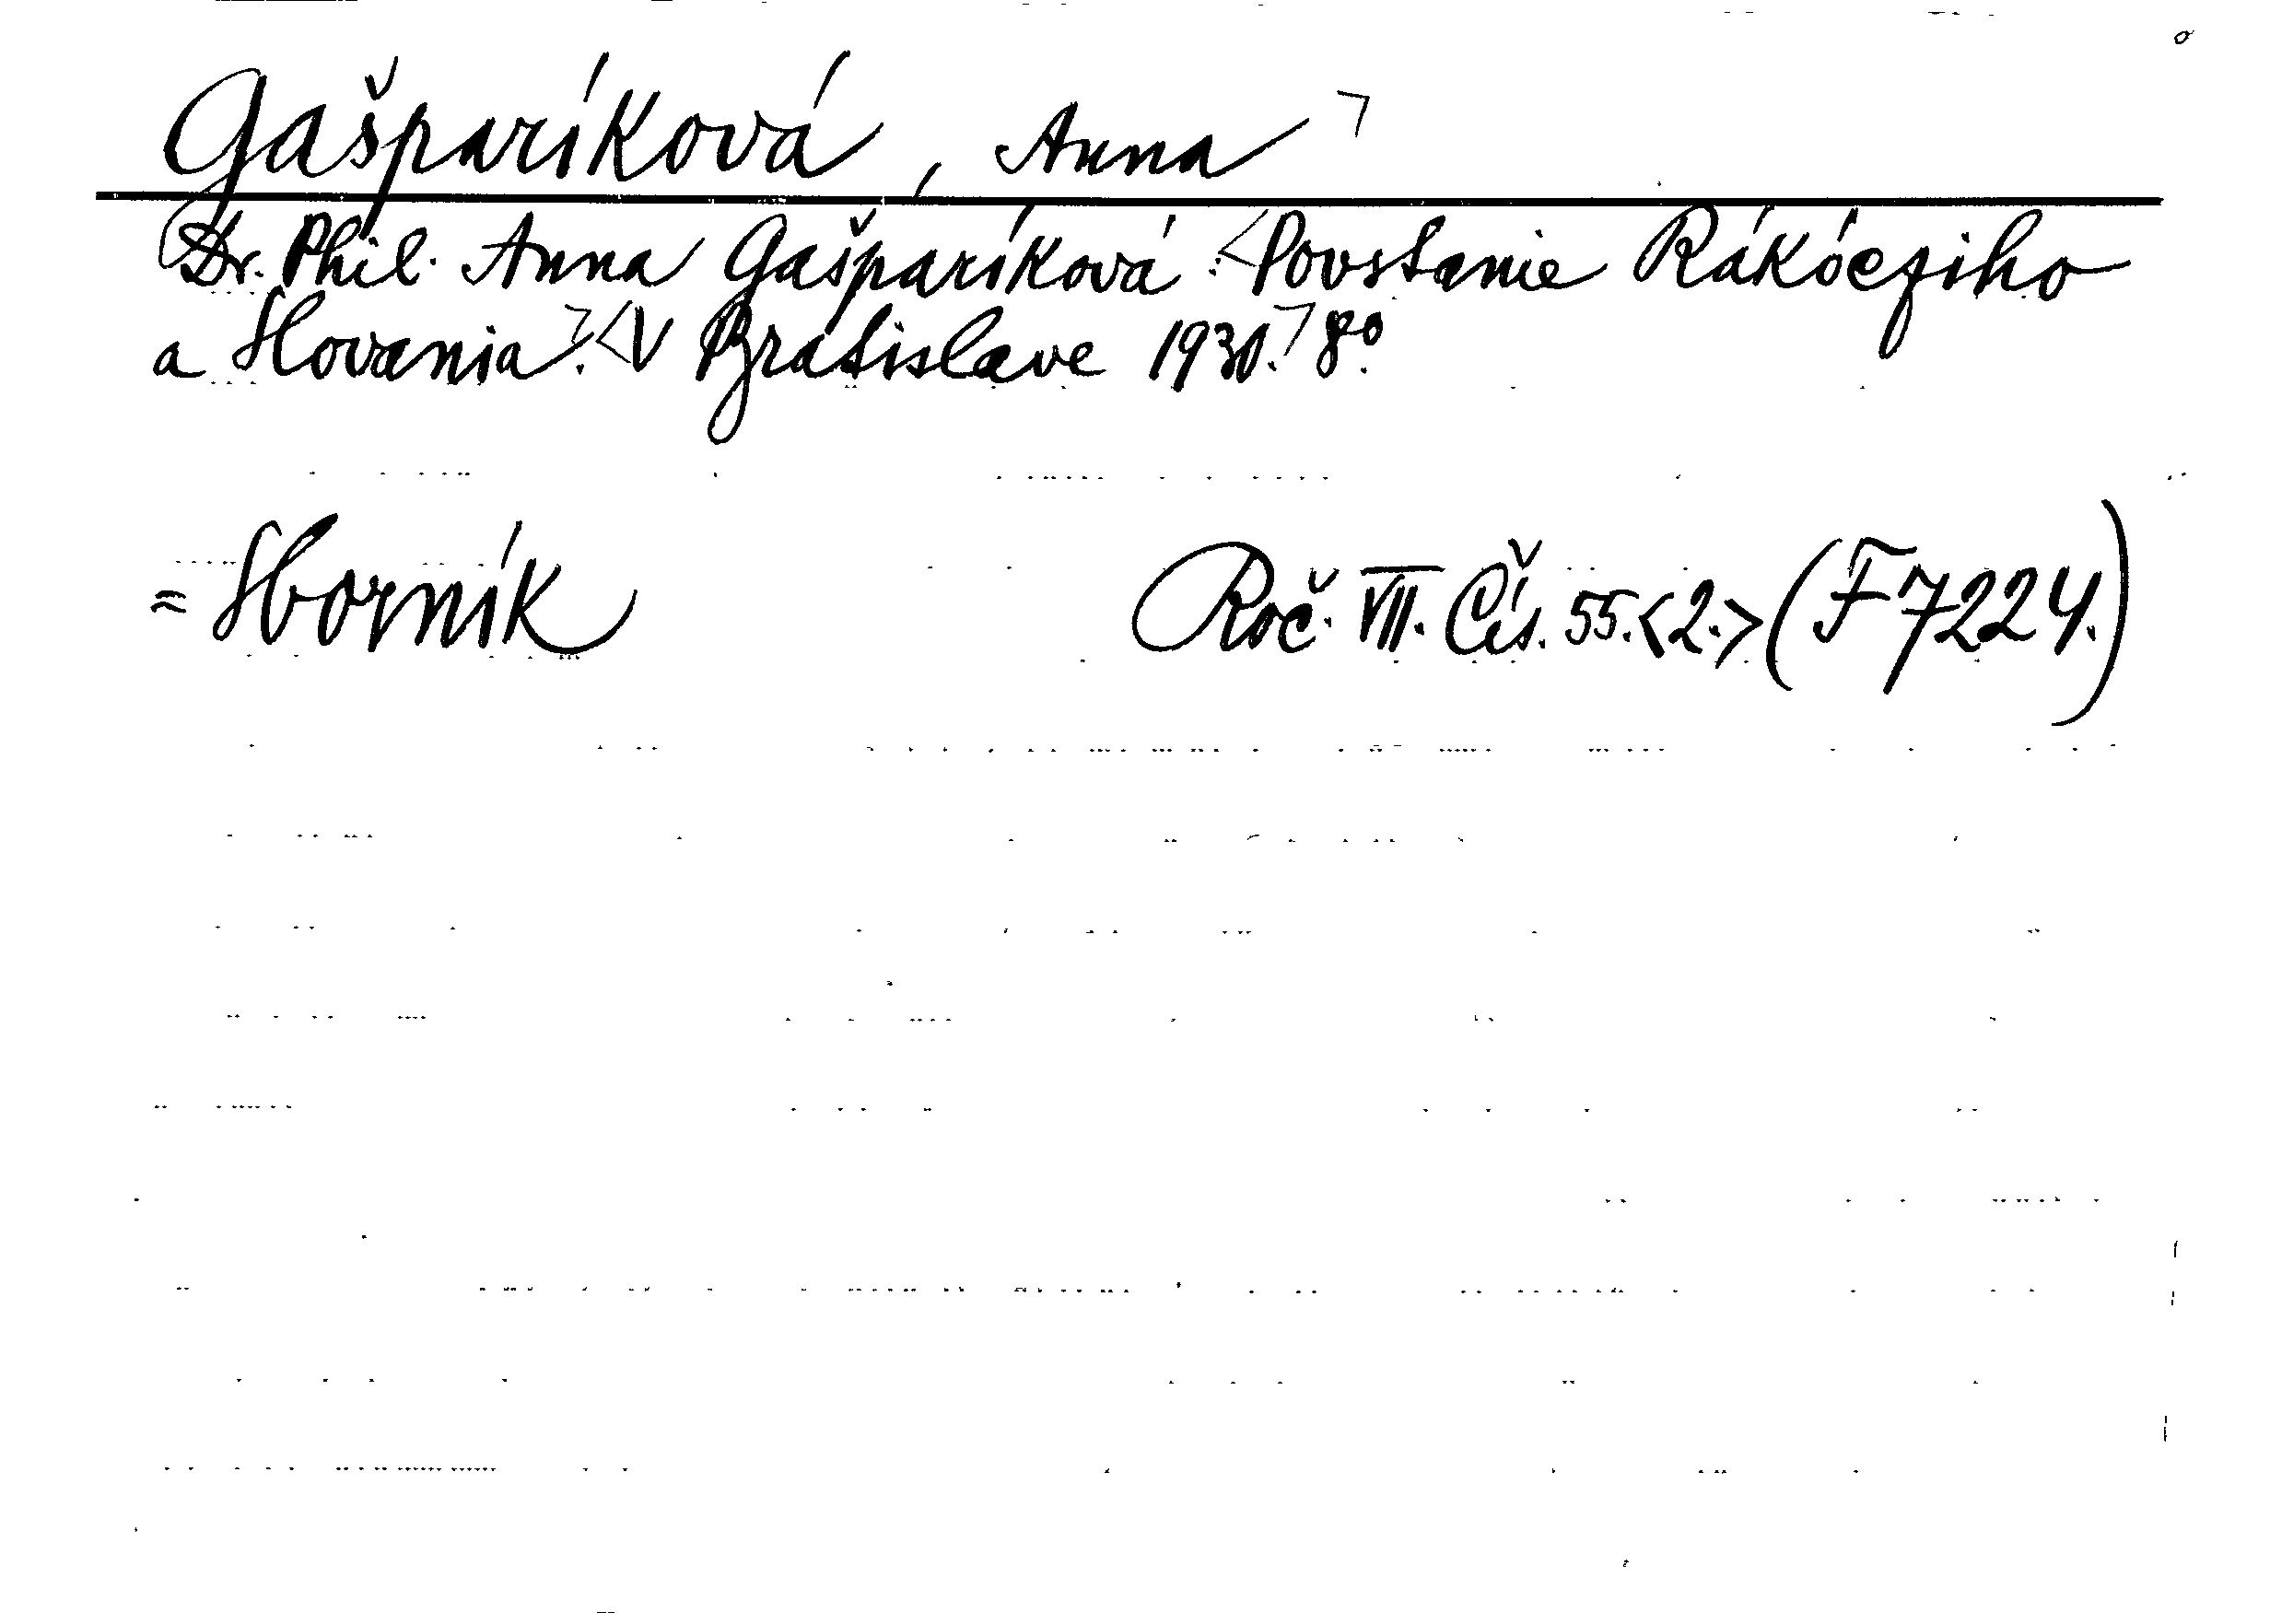 Gašparíková, Anna
Dr. Phil. Anna Gašparíková: <Povstanie Rákócziho
a Slovania>. <V Bratislave 1930.> 8º.
= Sborník Roč. VII. Čís. 55. <2.> (F 7224.)